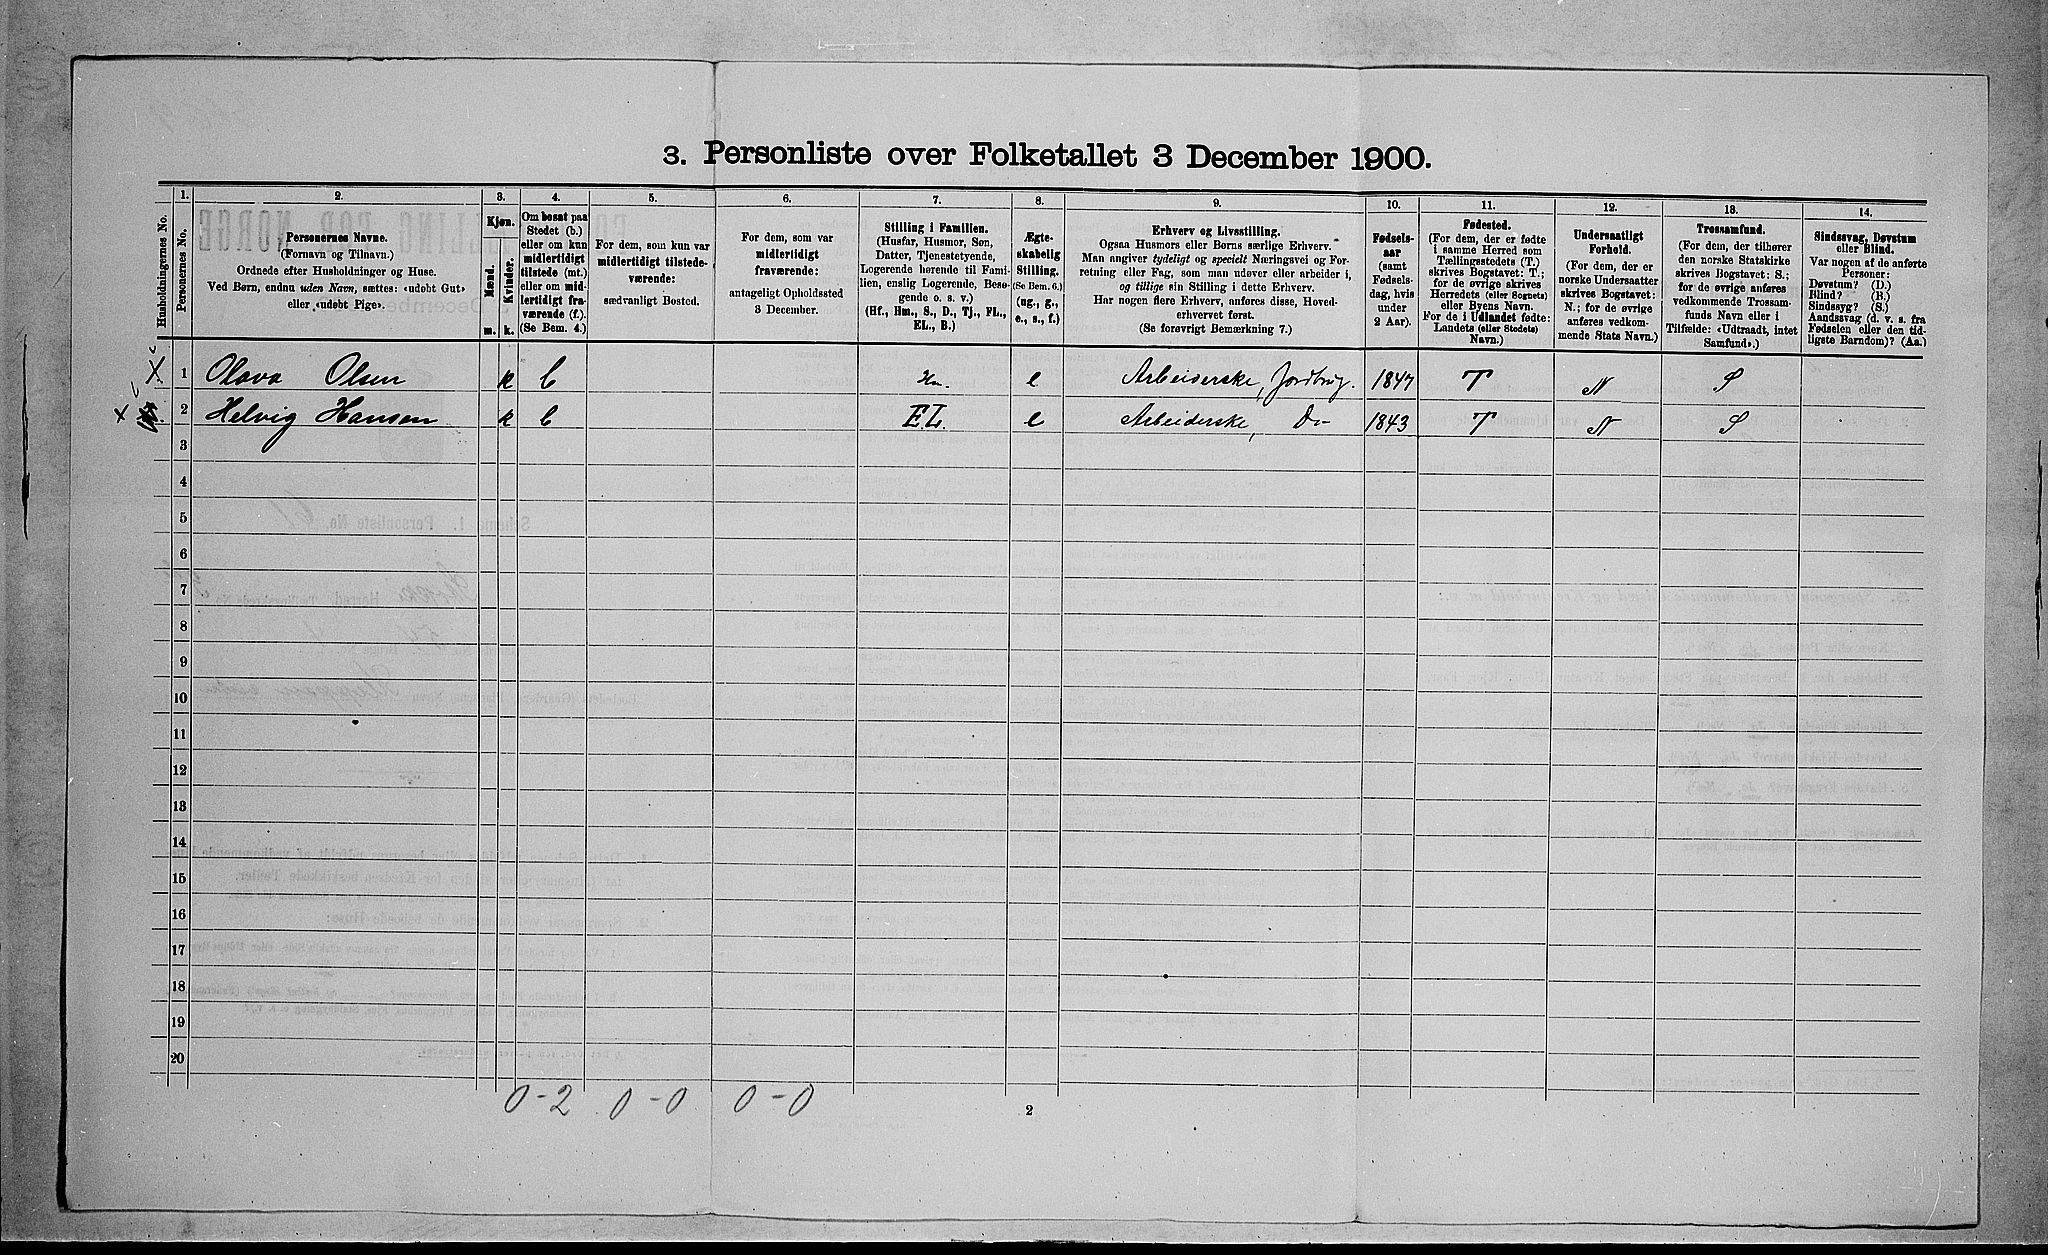 3. Personliste over Folketallet 3 December 1900.
Husholdningernes No.
1.
Personernes No.
2.
Personernes Navne.
(Fornavn og Tilnavn).
Ordnede efter Husholdninger og Huse.
Ved Børn, endnu uden Navn, sættes: «udøbt Gut»
eller «udøbt Pige».
3.
Kjøn.
Mænd.
Kvinder.
m.
k.
4.
Om bosat paa
Stedet (b.)
eller om kun
midlertidigt
tilstede (mt.)
eller om mid-
lertidigt fra-
værende (f.).
(Se Bem. 4.)
5.
For dem, som kun var
midlertidigt tilstede-
værende:
sædvanligt Bosted.
6.
For dem, som var
midlertidigt
fraværende:
antageligt Opholdssted
3 December.
7.
Stilling i Familien.
(Husfar, Husmor, Søn,
Datter, Tjenestetyende,
Logerende hørende til Fami-
lien, enslig Logerende, Besø-
gende o. s. v.)
(Hf., Hm., S., D., Tj., FL.,
EL., B.)
8.
Ægte-
skabelig
Stilling.
(Se Bem. 6.)
(ug., g.,
e., s., f.)
9.
Erhverv og Livsstilling.
Ogsaa Husmors eller Børns særlige Erhverv.
Man angiver tydeligt og specielt Næringsvei og For-
retning eller Fag, som man udøver eller arbeider i,
og tillige sin Stilling i dette Erhverv.
Har nogen flere Erhverv, anføres disse, Hoved-
erhvervet først.
(Se forøvrigt Bemærkning 7.)
10.
Fødsels-
aar
(samt
Fødsels-
dag, hvis
under
2 Aar).
11.
Fødested.
(For dem, der er fødte
i samme Herred som
Tællingsstedets (T.)
skrives Bogstavet: T.;
for de øvrige skrives
Herredets (eller Sognets)
eller Byens Navn.
For de i Udlandet fødte:
Landets (eller Stedets)
Navn.)
12.
Undersaatligt
Forhold.
(For dem, der er
norske Undersaatter
skrives Bogstavet:
N.; for de øvrige
anføres vedkom-
mende Stats Navn.)
13.
Trossamfund.
(For dem, der tilhører
den norske Statskirke
skrives Bogstavet: S.;
for de øvrige anføres
vedkommende Trossam-
funds Navn eller i
Tilfælde: «Udtraadt, intet
Samfund».)
14.
Sindssvag, Døvstum
eller Blind.
Var nogen af de anførte
Personer:
Døvstum? (D.)
Blind? (B.)
Sindssyg? (S.)
Aandssvag (d. v. s. fra
Fødselen eller den tid-
ligste Barndom)? (Aa.)
X 1 Olava Olsen k b Hm. e Arbeiderske, Jordbrug. 1847 T N S
X 2 Helvig Hansen k b E.L. e Arbeiderske, Do 1843 T N S
3
4
5
6
7
8
9
10
11
12
13
14
15
16
17
18
19
20
0-2 0-0 0-0
2